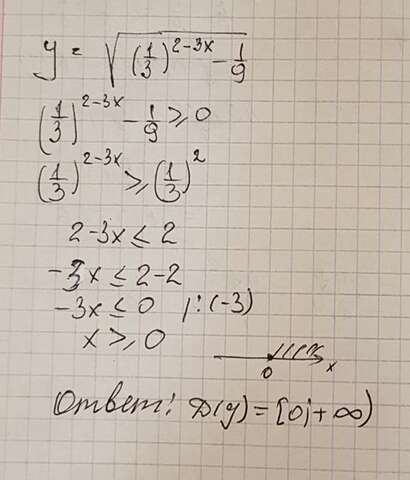 y = √((1/3)^(2-3x) - 1/9)
(1/3)^(2-3x) - 1/9 ⩾ 0
(1/3)^(2-3x) ⩾ (1/3)^2
2-3x ≤ 2
-3x ≤ 2-2
-3x ≤ 0 /:(-3)
x ⩾ 0
0 x
Ответ: D(y) = [0;+∞)